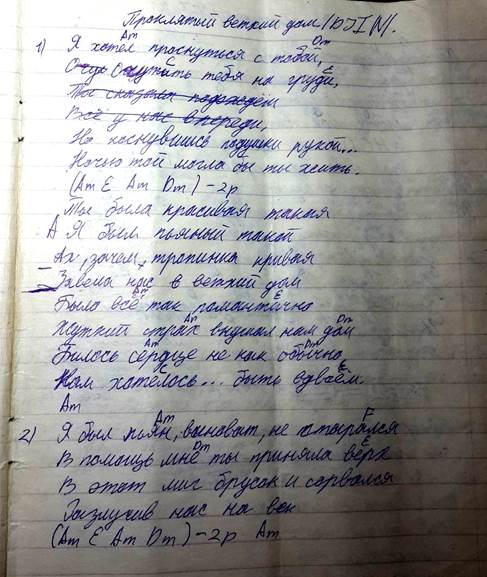 Проклятый ветхий дом (DJIN).
Am Dm
1) Я хотел проснуться с тобой,
C E
Ощутить тебя на груди,
Ты сказала подождём
Всё у нас впереди,
Но коснувшись подушки рукой...
Ночью той могла бы ты жить.
(Am E Am Dm) - 2р
Ты была красивая такая
А Я был пьяный такой
Ах, зачем, тропинка кривая
Завела нас в ветхий дом
Am E
Было всё так романтично
Am Dm
Жуткий страх внушал нам дом
Am Dm
Билось сердце не как обычно
C E
Нам хотелось... быть вдвоём
Am
Am F
2) Я был пьян, виноват, не отпирался
Dm E
В помощь мне ты приняла верх
В этот миг брусок и сорвался
Разлучив нас на век
(Am E Am Dm) - 2р Am